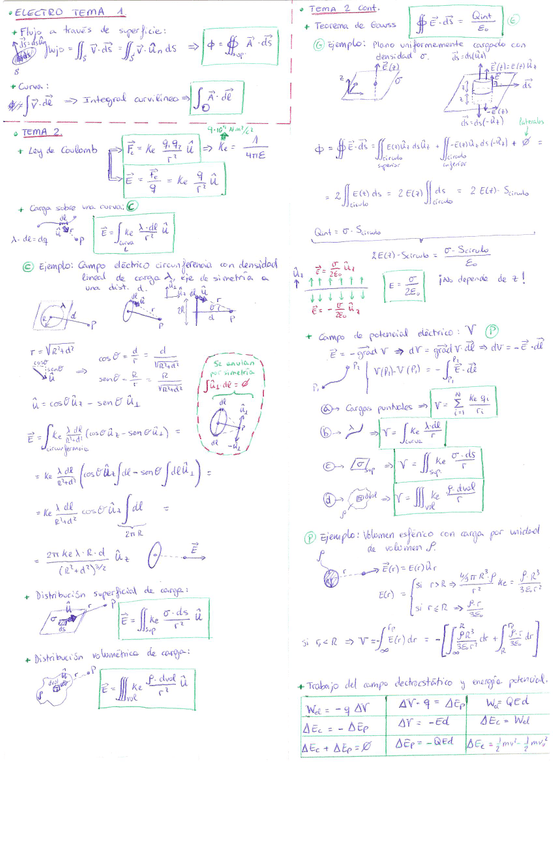 • ELECTRO TEMA 1
+ Flujo a través de superficie:
flujo = ∬ₛ v⃗·ds⃗ = ∬ₛ v⃗·ûₙ ds ⇒ ϕ = ∯ₛᵤₚ. A⃗·ds⃗
+ Curva:
∫ v⃗·dℓ⃗ ⇒ Integral curvilínea ⇒ ∫ A⃗·dℓ⃗
• TEMA 2.
+ Ley de Coulomb
F⃗ₑ = Ke q₁q₂/r² û ⇒ Ke = 1/4πε
E⃗ = F⃗ₑ/q = Ke q/r² û
+ Carga sobre una curva: C
λ·dℓ = dq
E⃗ = ∫curva Ke λ·dℓ/r² û
C Ejemplo: Campo eléctrico circunferencia con densidad
lineal de carga λ, eje de simetría a
una dist. d.
r = √R²+d² ⇒ cosθ = d/r = d/√R²+d²
senθ = R/r = R/√R²+d²
Se anulan
por simetría
∫û⊥ dℓ = ∅
û = cosθ û_z − senθ û⊥
E⃗ = ∫circunferencia Ke λdℓ/R²+d² (cosθ û_z − senθ û⊥) =
= Ke λdℓ/R²+d² (cosθ û_z ∫dℓ − senθ ∫dℓ û⊥) =
= Ke λdℓ/R²+d² cosθ û_z ∫dℓ =
2πR
= 2π Ke λ·R·d/(R²+d²)^3/2 û_z
+ Distribución superficial de carga:
E⃗ = ∬sup. Ke σ·ds/r² û
+ Distribución volumétrica de carga:
E⃗ = ∭vol Ke ρ·dvol/r² û
• TEMA 2 cont.
+ Teorema de Gauss ∯ E⃗·ds⃗ = Qint/ε₀ G
G Ejemplo: Plano uniformemente cargado con
densidad σ.
laterales
ϕ = ∯ E⃗·ds⃗ = ∬círculo superior E(z)û_z ds û_z + ∬círculo inferior −E(z)û_z ds(−û_z) + ∅ =
= 2∬círculo E(z) ds = 2E(z) ∬círculo ds = 2 E(z)·Scírculo
Qint = σ·Scírculo
2E(z)·Scírculo = σ·Scírculo/ε₀
E = σ/2ε₀ ¡No depende de z!
+ Campo de potencial eléctrico: V P
E⃗ = −grad V ⇒ dV = grad V dℓ⃗ ⇒ dV = −E⃗·dℓ⃗
V(P₂)−V(P₁) = −∫ E⃗·dℓ⃗
a → Cargas puntuales ⇒ V = Σ Ke qᵢ/rᵢ
b → ⇒ V = ∫curva Ke λ·dℓ/r
c → ⇒ V = ∬sup Ke σ·ds/r
d → ⇒ V = ∭vol Ke ρ·dvol/r
P Ejemplo: Volumen esférico con carga por unidad
de volumen ρ.
E⃗(r) = E(r)û_r
E(r) = { si r>R ⇒ 4/3πR³ρ/r² Ke = ρ·R³/3ε₀r²
si r≤R ⇒ ρ·r/3ε₀
si r≤R ⇒ V = −∫ E(r)dr = −[∫ ρR³/3ε₀r² dr + ∫ ρ·r/3ε₀ dr]
+ Trabajo del campo electrostático y energía potencial.
We = −q ΔV | ΔV·q = ΔEp | We = QEd
ΔEc = −ΔEp | ΔV = −Ed | ΔEc = We
ΔEc + ΔEp = ∅ | ΔEp = −QEd | ΔEc = ½mv² − ½mv₀²